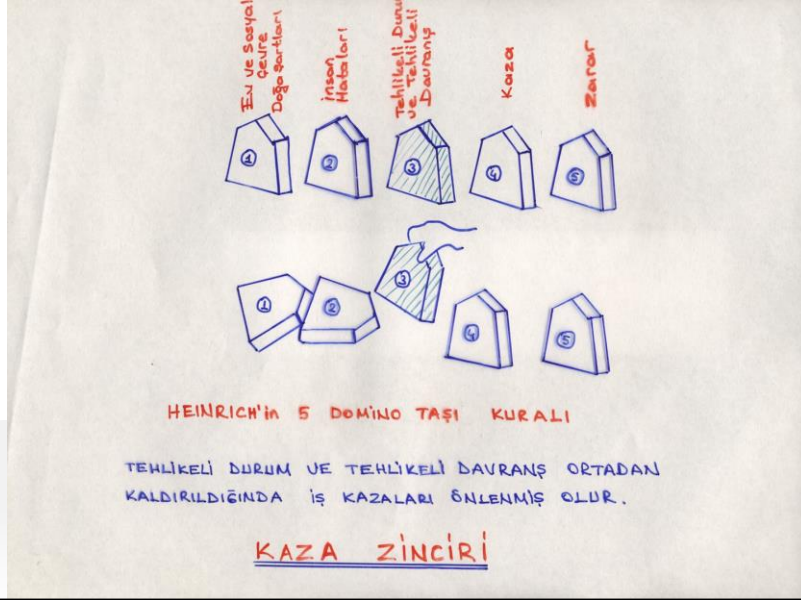 Ev ve Sosyal
Çevre
Doğa Şartları
İnsan
Hataları
Tehlikeli Duru
ve Tehlikeli
Davranış
Kaza
Zarar
1
2
3
4
5
1
2
3
4
5
HEINRICH'in 5 DOMİNO TAŞI KURALI
TEHLİKELİ DURUM VE TEHLİKELİ DAVRANŞ ORTADAN
KALDIRILDIĞINDA İŞ KAZALARI ÖNLENMİŞ OLUR.
KAZA ZİNCİRİ